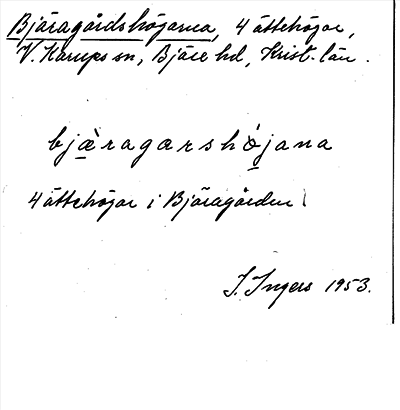 Bjäragårdshöjarna, 4 ättehöjar,
V. Karups sn, Bjäre hd, Krist. län.
bjæ̀ragarshǿjana
4 ättehöjar i Bjäragården
I. Ingers 1953.